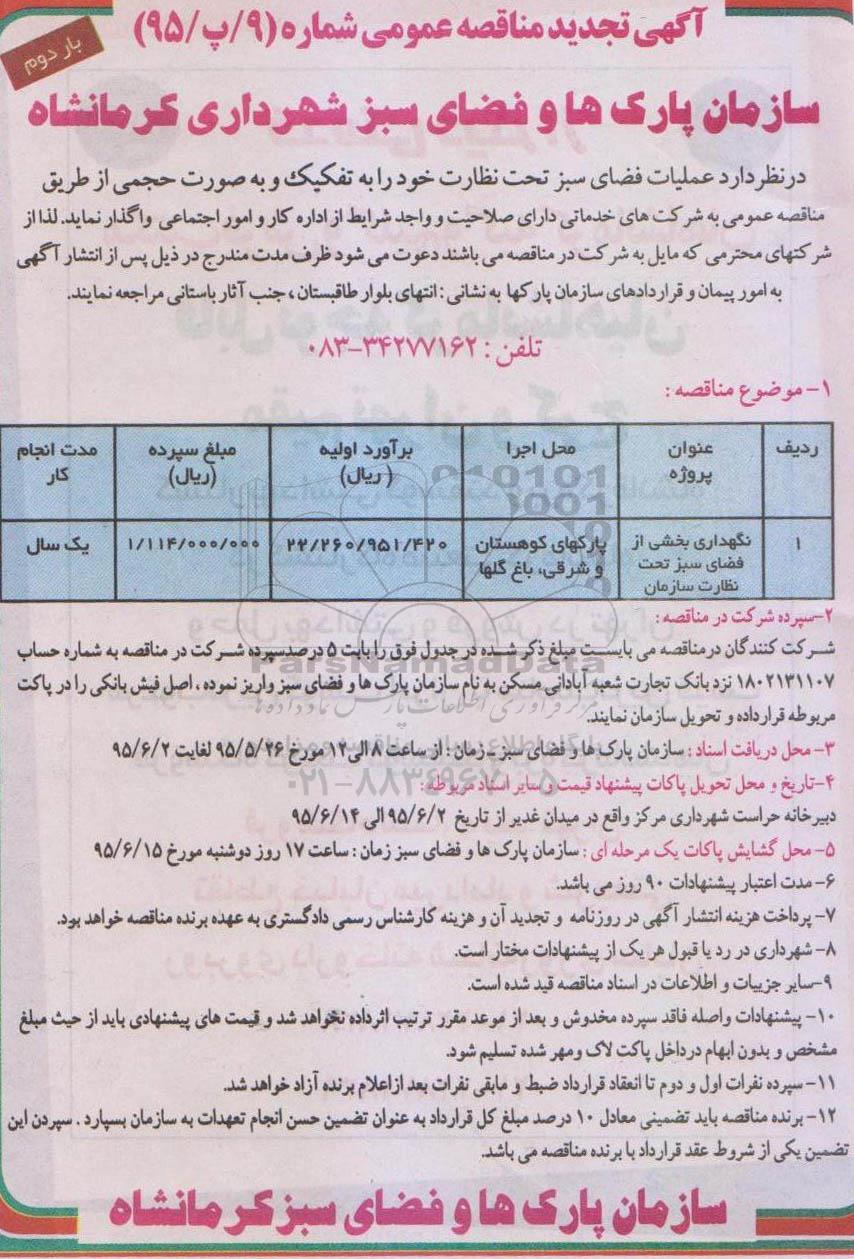 آگهی تجدید مناقصه عمومی شماره (۹/پ/۹۵)
بار دوم
سازمان پارک ها و فضای سبز شهرداری کرمانشاه
درنظر دارد عملیات فضای سبز تحت نظارت خود را به تفکیک و به صورت حجمی از طریق
مناقصه عمومی به شرکت های خدماتی دارای صلاحیت و واجد شرایط از اداره کار و امور اجتماعی واگذار نماید. لذا از
شرکتهای محترمی که مایل به شرکت در مناقصه می باشند دعوت می شود ظرف مدت مندرج در ذیل پس از انتشار آگهی
به امور پیمان و قراردادهای سازمان پارکها به نشانی : انتهای بلوار طاقبستان ، جنب آثار باستانی مراجعه نمایند.
تلفن : ۳۴۲۷۷۱۶۲-۰۸۳
۱- موضوع مناقصه :
ردیف عنوان پروژه محل اجرا برآورد اولیه (ریال) مبلغ سپرده (ریال) مدت انجام کار
۱ نگهداری بخشی از فضای سبز تحت نظارت سازمان پارکهای کوهستان و شرقی، باغ گلها ۲۲/۲۶۰/۹۵۱/۴۲۰ ۱/۱۱۴/۰۰۰/۰۰۰ یک سال
۲-سپرده شرکت در مناقصه :
شرکت کنندگان درمناقصه می بایست مبلغ ذکر شده در جدول فوق را بابت ۵ درصد سپرده شرکت در مناقصه به شماره حساب
۱۸۰۲۱۳۱۱۰۷ نزد بانک تجارت شعبه آبادانی مسکن به نام سازمان پارک ها و فضای سبز واریز نموده ، اصل فیش بانکی را در پاکت
مربوطه قرارداده و تحویل سازمان نمایند.
۳- محل دریافت اسناد : سازمان پارک ها و فضای سبز - زمان : از ساعت ۸ الی ۱۲ مورخ ۹۵/۵/۲۶ لغایت ۹۵/۶/۲
۴-تاریخ و محل تحویل پاکات پیشنهاد قیمت و سایر اسناد مربوطه :
دبیرخانه حراست شهرداری مرکز واقع در میدان غدیر از تاریخ ۹۵/۶/۲ الی ۹۵/۶/۱۴
۵- محل گشایش پاکات یک مرحله ای : سازمان پارک ها و فضای سبز زمان : ساعت ۱۷ روز دوشنبه مورخ ۹۵/۶/۱۵
۶- مدت اعتبار پیشنهادات ۹۰ روز می باشد.
۷- پرداخت هزینه انتشار آگهی در روزنامه و تجدید آن و هزینه کارشناس رسمی دادگستری به عهده برنده مناقصه خواهد بود.
۸- شهرداری در رد یا قبول هر یک از پیشنهادات مختار است.
۹-سایر جزییات و اطلاعات در اسناد مناقصه قید شده است.
۱۰- پیشنهادات واصله فاقد سپرده مخدوش و بعد از موعد مقرر ترتیب اثر داده نخواهد شد و قیمت های پیشنهادی باید از حیث مبلغ
مشخص و بدون ابهام درداخل پاکت لاک ومهر شده تسلیم شود.
۱۱- سپرده نفرات اول و دوم تا انعقاد قرارداد ضبط و مابقی نفرات بعد ازاعلام برنده آزاد خواهد شد.
۱۲- برنده مناقصه باید تضمینی معادل ۱۰ درصد مبلغ کل قرارداد به عنوان تضمین حسن انجام تعهدات به سازمان بسپارد . سپردن این
تضمین یکی از شروط عقد قرارداد با برنده مناقصه می باشد.
سازمان پارک ها و فضای سبز کرمانشاه
ParsNamadData
۰۲۱-۸۸۳۴۹۶۷۰-۵